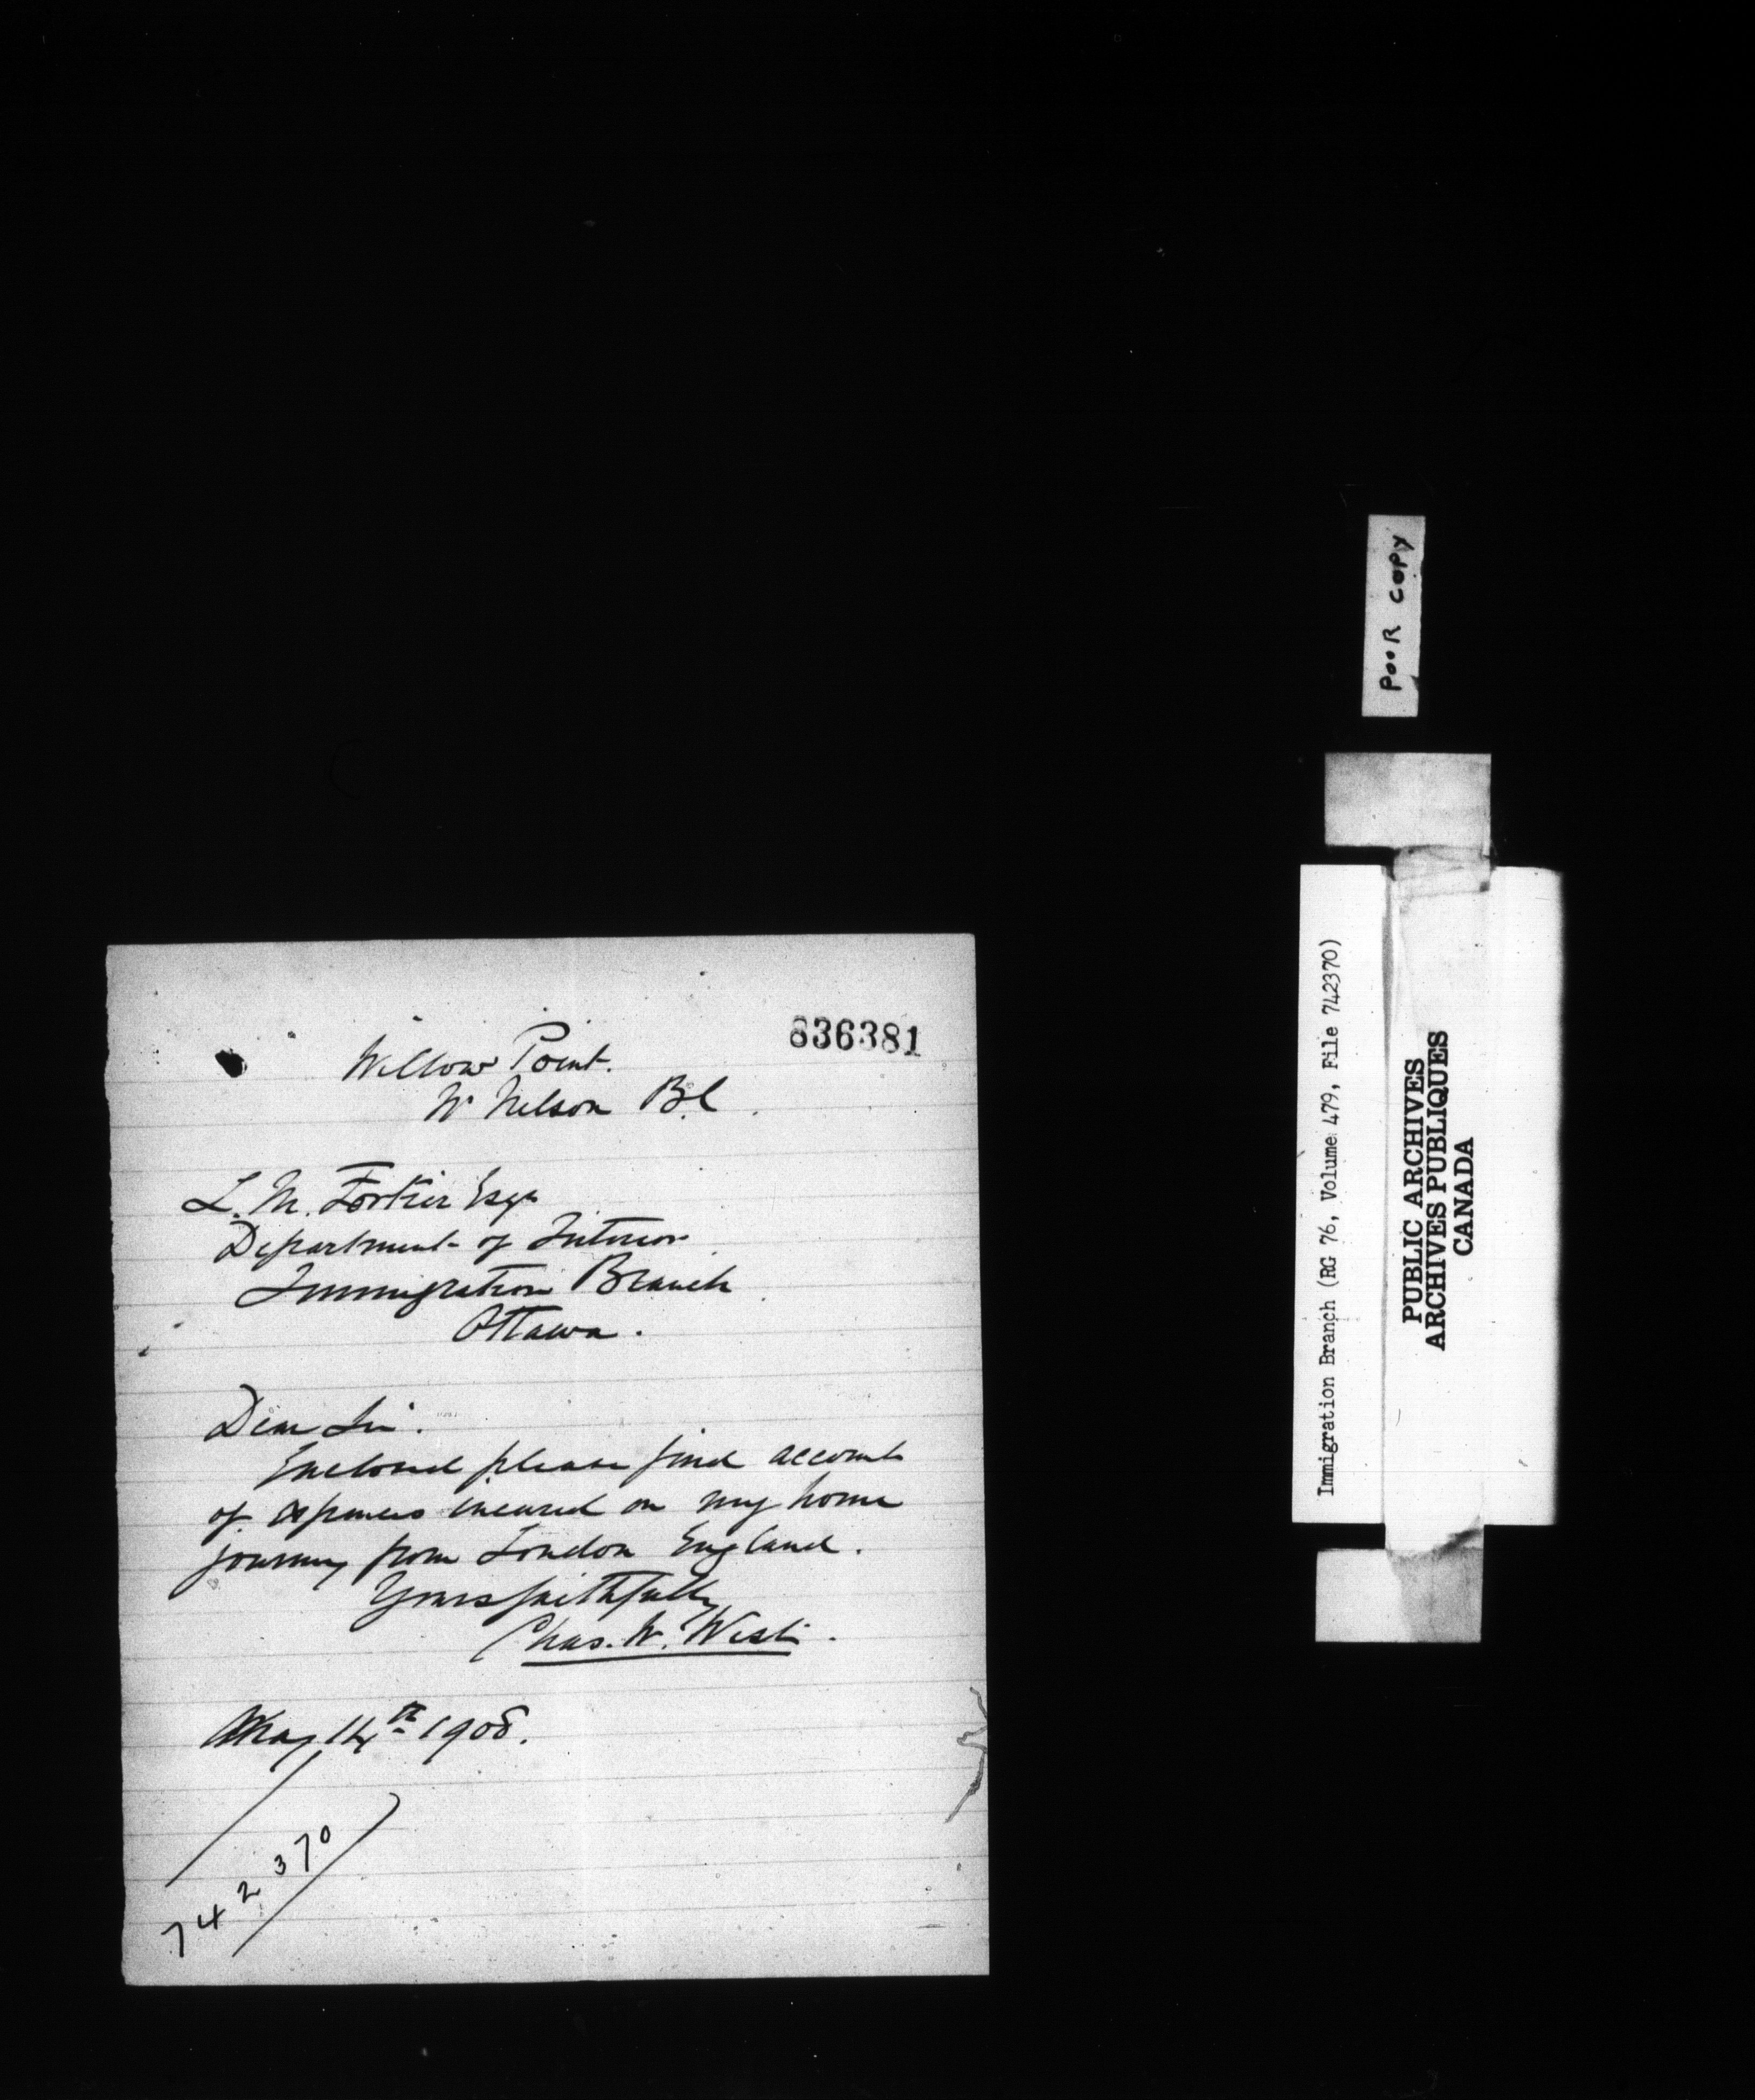 836381
Willow Point.
Nr Nelson B.C.
L. M. Fortier Esqr
Department of Interior
Immigration Branch
Ottawa.
Dear Sir.
Enclosed please find account
of expenses incured on my home
journey from London England.
Yours faithfully
Chas. W. West.
May 14th 1908.
742370
POOR COPY
Immigration Branch (RG 76, Volume 479, File 742370)
PUBLIC ARCHIVES
ARCHIVES PUBLIQUES
CANADA